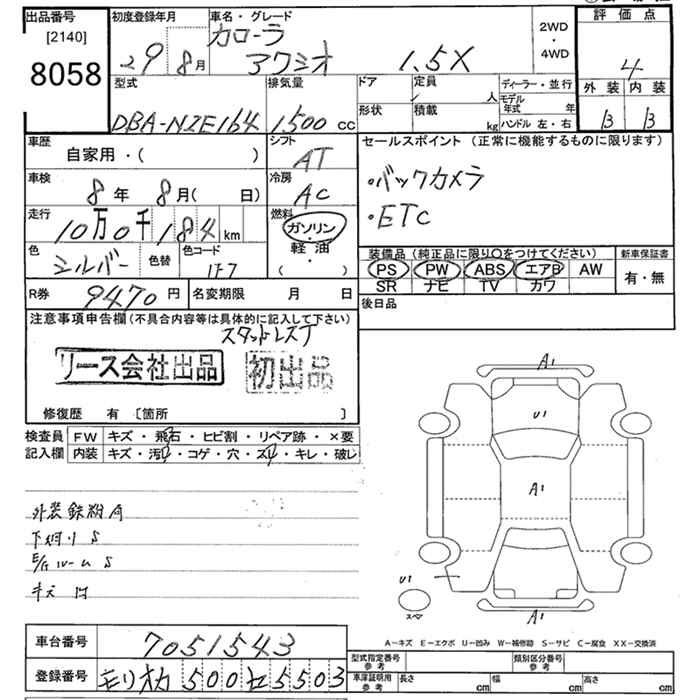 出品番号
[2140]
8058
初度登録年月
29 8月
車名・グレード
カローラ
アクシオ 1.5X
2WD
・
4WD
評価点
4
外装 内装
B B
型式
DBA-NZE164
排気量
1,500 cc
ドア
形状
定員 人
積載 kg
ディーラー・並行
モデル年式 年
ハンドル 左・右
車歴
自家用・( )
シフト
AT
車検
8年 8月( 日)
冷房
AC
走行
10万0千184km
燃料
ガソリン
・
軽油
( ・ )
色
シルバー
色替
色コード
1F7
R券 9470円
名変期限 月 日
セールスポイント(正常に機能するものに限ります)
・バックカメラ
・ETC
装備品(純正品に限り○をつけてください)
PS PW ABS エアB AW
SR ナビ TV カワ
新車保証書
有・無
後日品
注意事項申告欄(不具合内容等は具体的に記入して下さい)
スタットレス丁
リース会社出品
初出品
修復歴 有 〔箇所 〕
検査員
記入欄
FW キズ・飛石・ヒビ割・リペア跡・×要
内装 キズ・汚れ・コゲ・穴・スレ・キレ・破レ
外装
下廻りS
S
A1
U1
A1
U1
スペア
A1
A-キズ E-エクボ U-凹み W-補修跡 S-サビ C-腐食 XX-交換済
車台番号 7051543
登録番号 モリオカ500セ5503
型式指定番号
参考
類別区分番号
参考
車庫証明用
参考
長さ cm
幅 cm
高さ cm